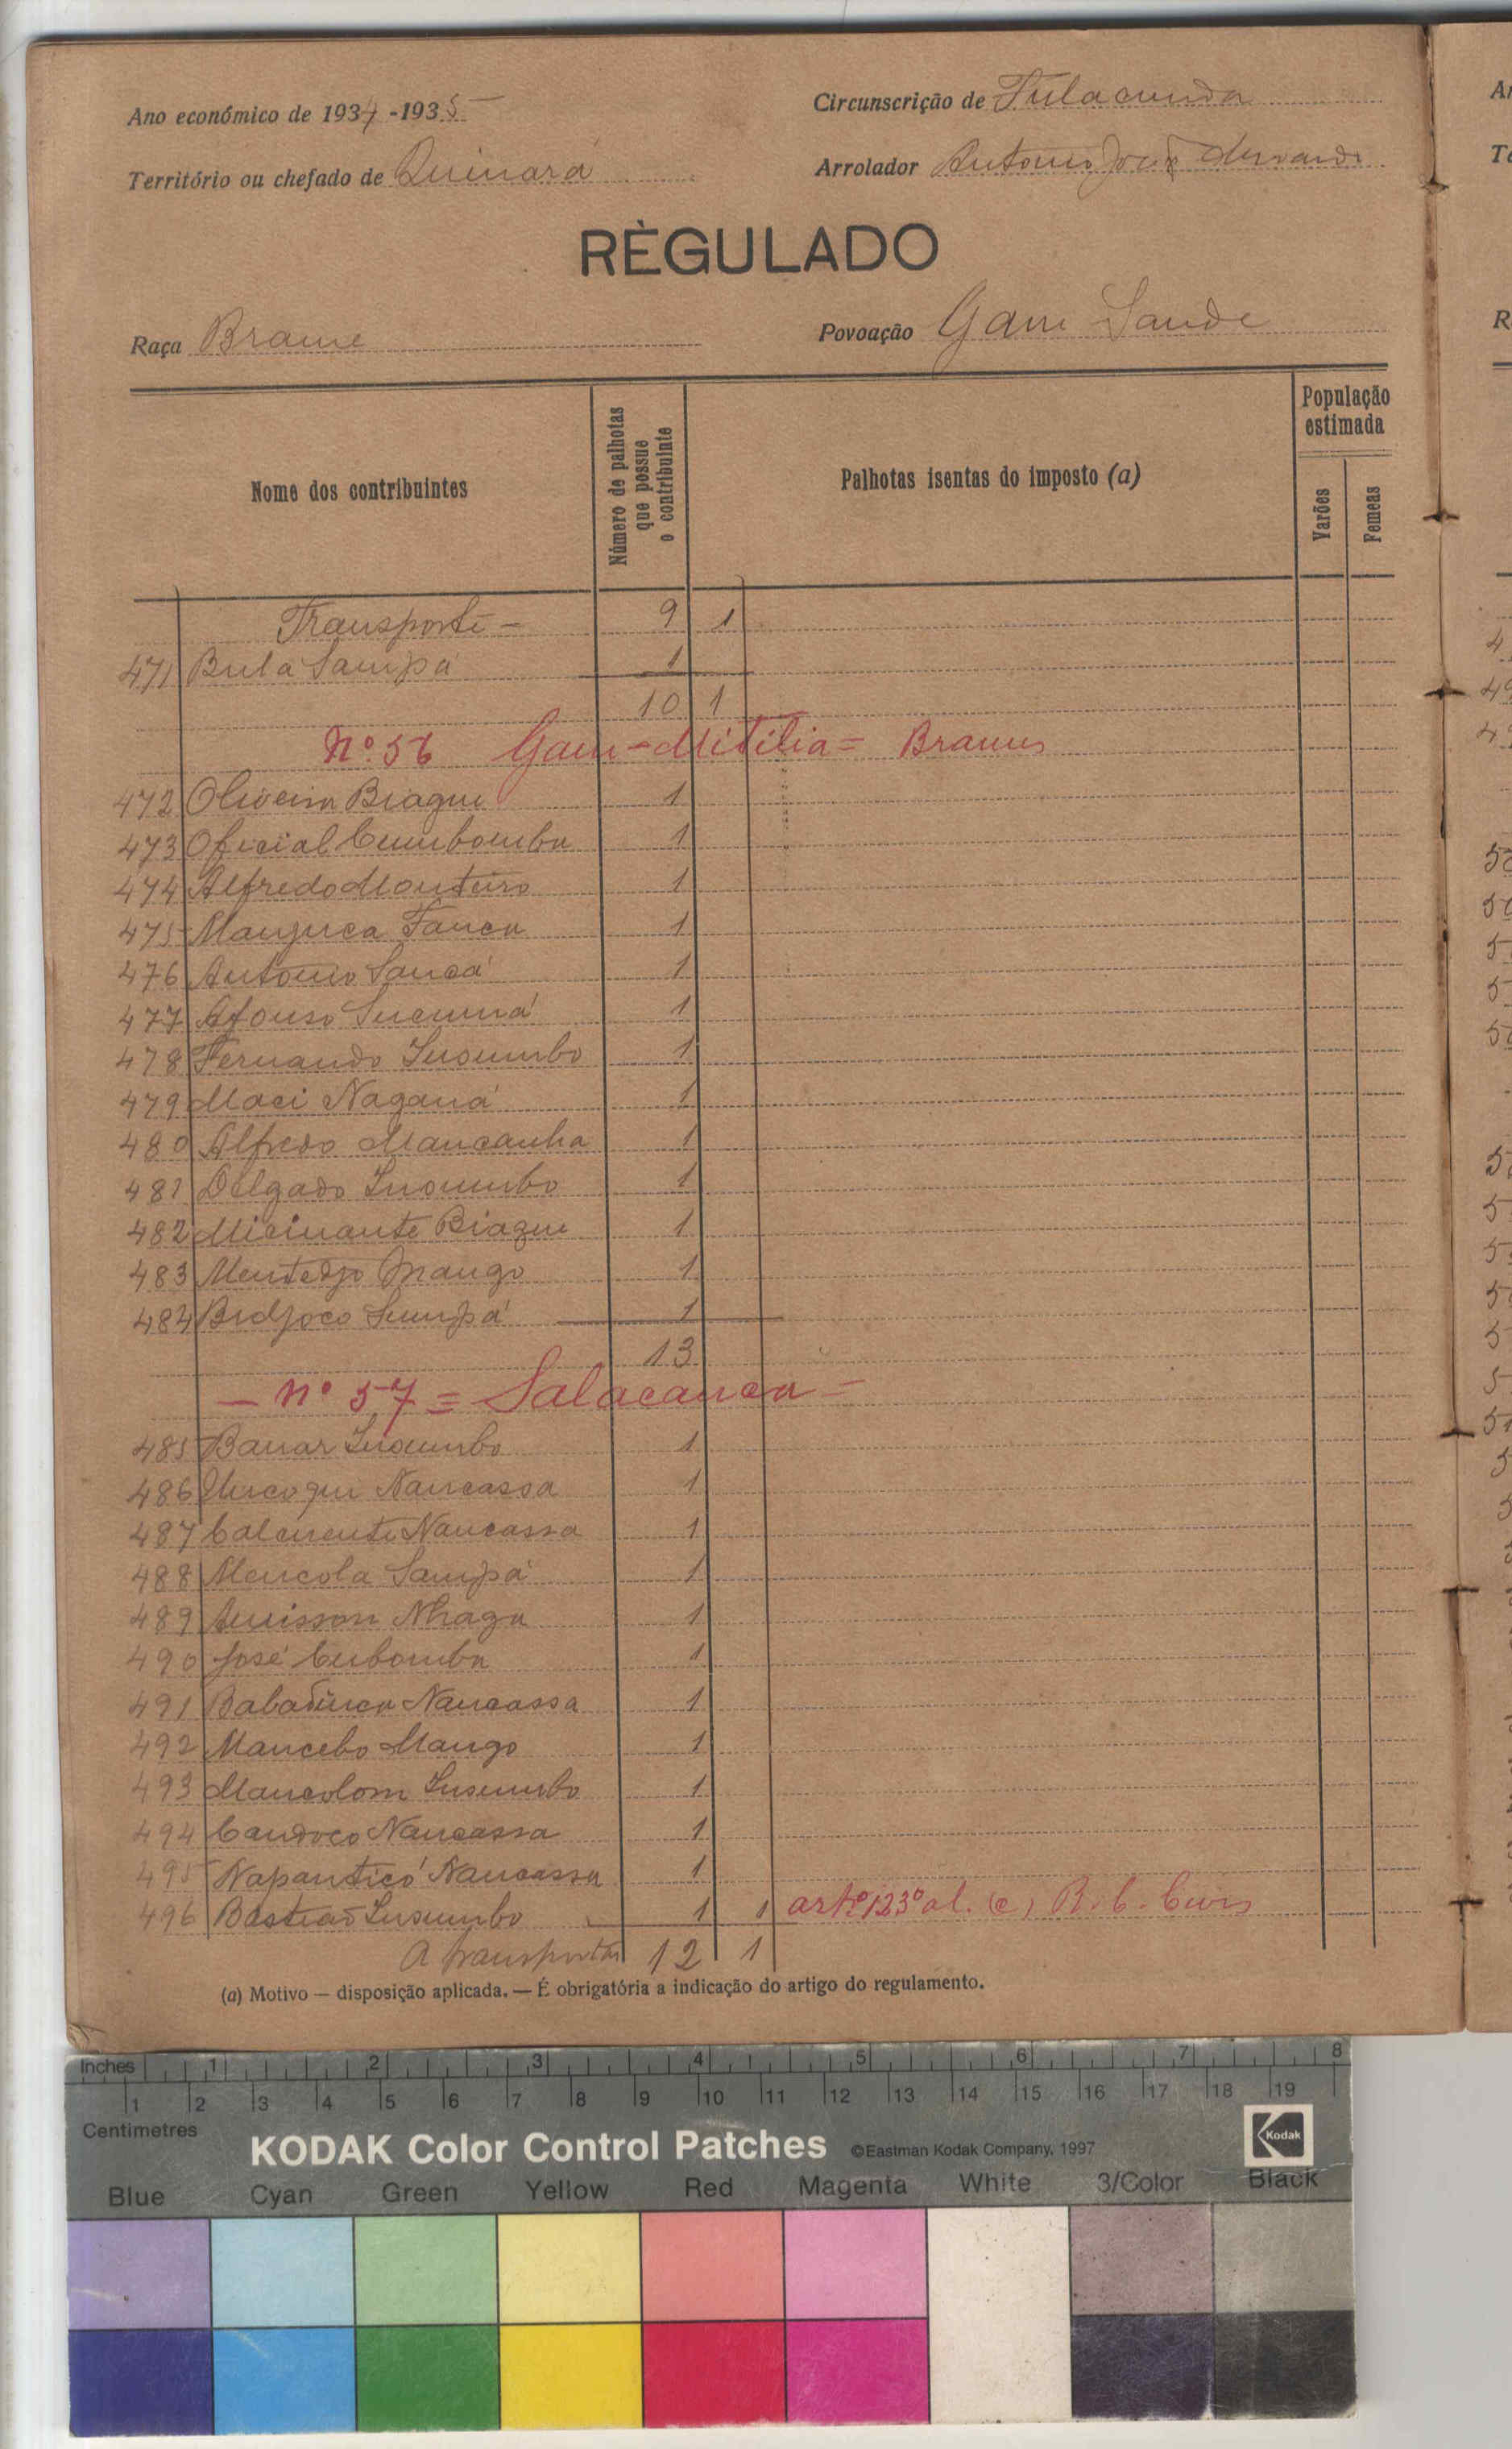 Ano económico de 1934-1935
Circunscrição de Fulacunda
Território ou chefado de Quinará
Arrolador Antonio José
RÈGULADO
Raça Brame
Povoação Gam Saude
Nome dos contribuintes
Número de palhotas que possue o contribuinte
Palhotas isentas do imposto (a)
População estimada
Varões
Femeas
Transporte - 9 1
471 Bula Sampá 1
10 1
Nº 56 Gam-Mitilia = Brames
472 Oliveira Biague 1
473 Oficial Cumbomba 1
474 Alfredo Monteiro 1
475 Manjuca Fanca 1
476 Antonio Sancá 1
477 Afonso Sucumá 1
478 Fernando Insumbo 1
479 Maci Nagana 1
480 Alfredo Mancanha 1
481 Delgado Insumbo 1
482 Micinante Biague 1
483 Mentedjo Mango 1
484 Bidjoco Sumpá 1
13
- nº 57 = Salacanca =
485 Banar Insumbo 1
486 Nancassa 1
487 Calcirente Nancassa 1
488 Mencola Sampá 1
489 Amisson Nhaga 1
490 José Cubomba 1
491 Babadinca Nancassa 1
492 Mancebo Mango 1
493 Mancolom Insumbo 1
494 Candoco Nancassa 1
495 Napanticó Nancassa 1
496 Bastião Insumbo 1 1 artº 123º al. (c) R. C. Civis
A transportar 12 1
(a) Motivo — disposição aplicada. — É obrigatória a indicação do artigo do regulamento.
Inches 1 2 3 4 5 6 7 8
1 2 3 4 5 6 7 8 9 10 11 12 13 14 15 16 17 18 19
Centimetres
KODAK Color Control Patches ©Eastman Kodak Company, 1997 Kodak
Blue Cyan Green Yellow Red Magenta White 3/Color Black